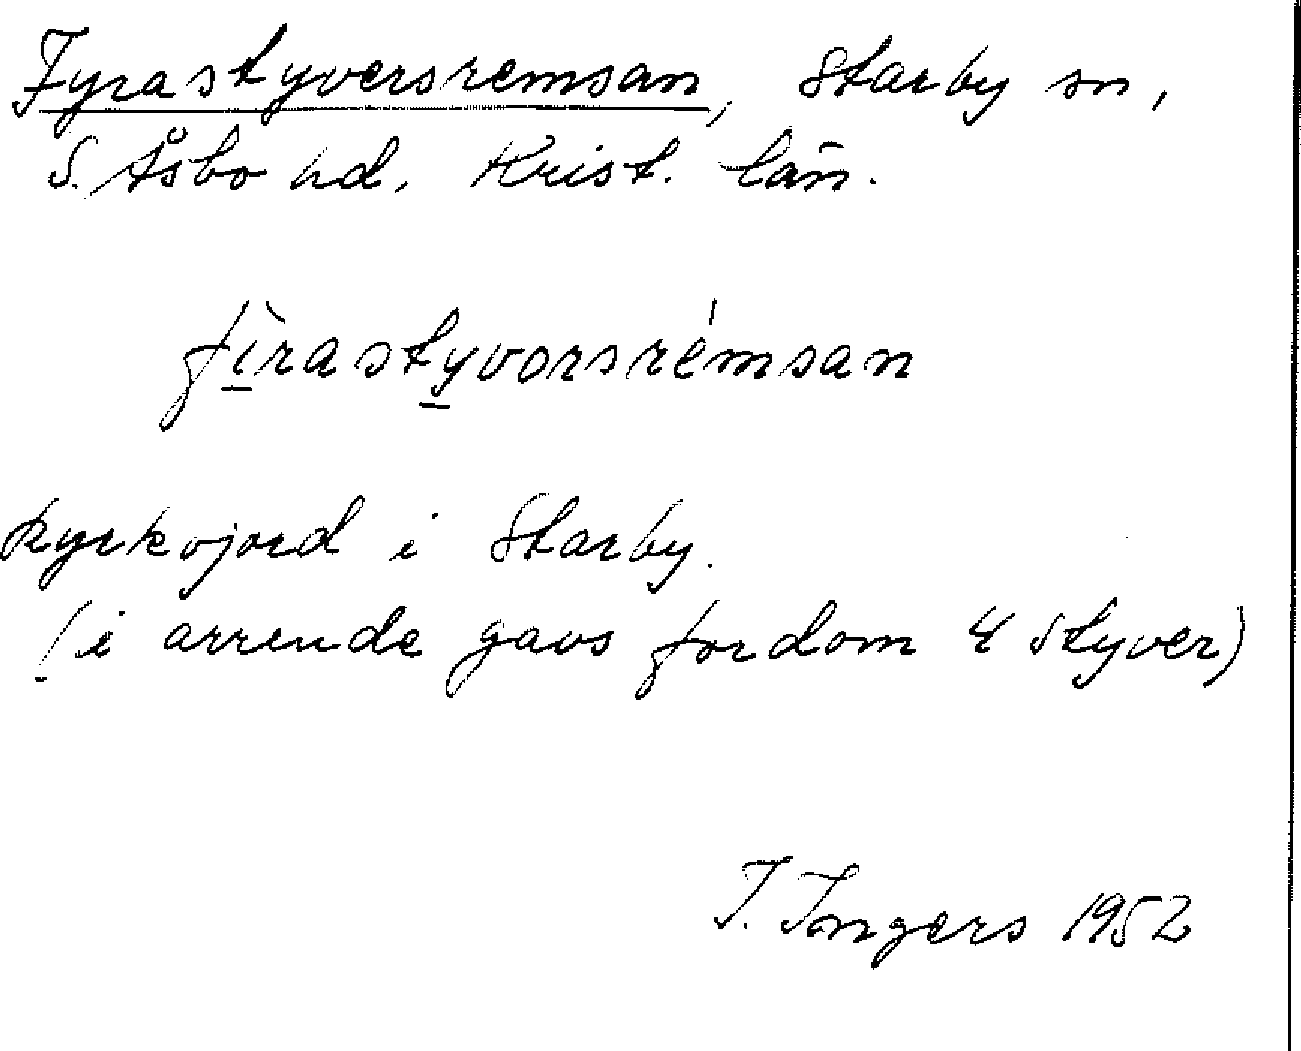 Fyrastyversremsan, Starby sn,
S. Åsbo hd, Krist. län.
fìrastyvorsrémsan
kyrkojord i Starby.
(i arrende gavs fordom 4 styver)
I. Ingers 1952